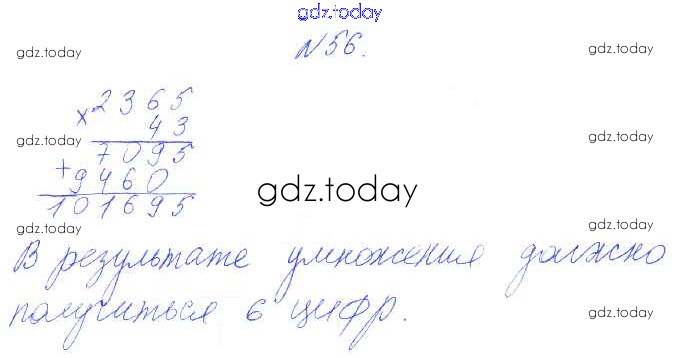 gdz.today
№56.
gdz.today gdz.today
× 2365
43
gdz.today gdz.today
7095
+ 9460
gdz.today
101695
gdz.today gdz.today
В результате умножения должно
получиться 6 цифр.
gdz.today gdz.today